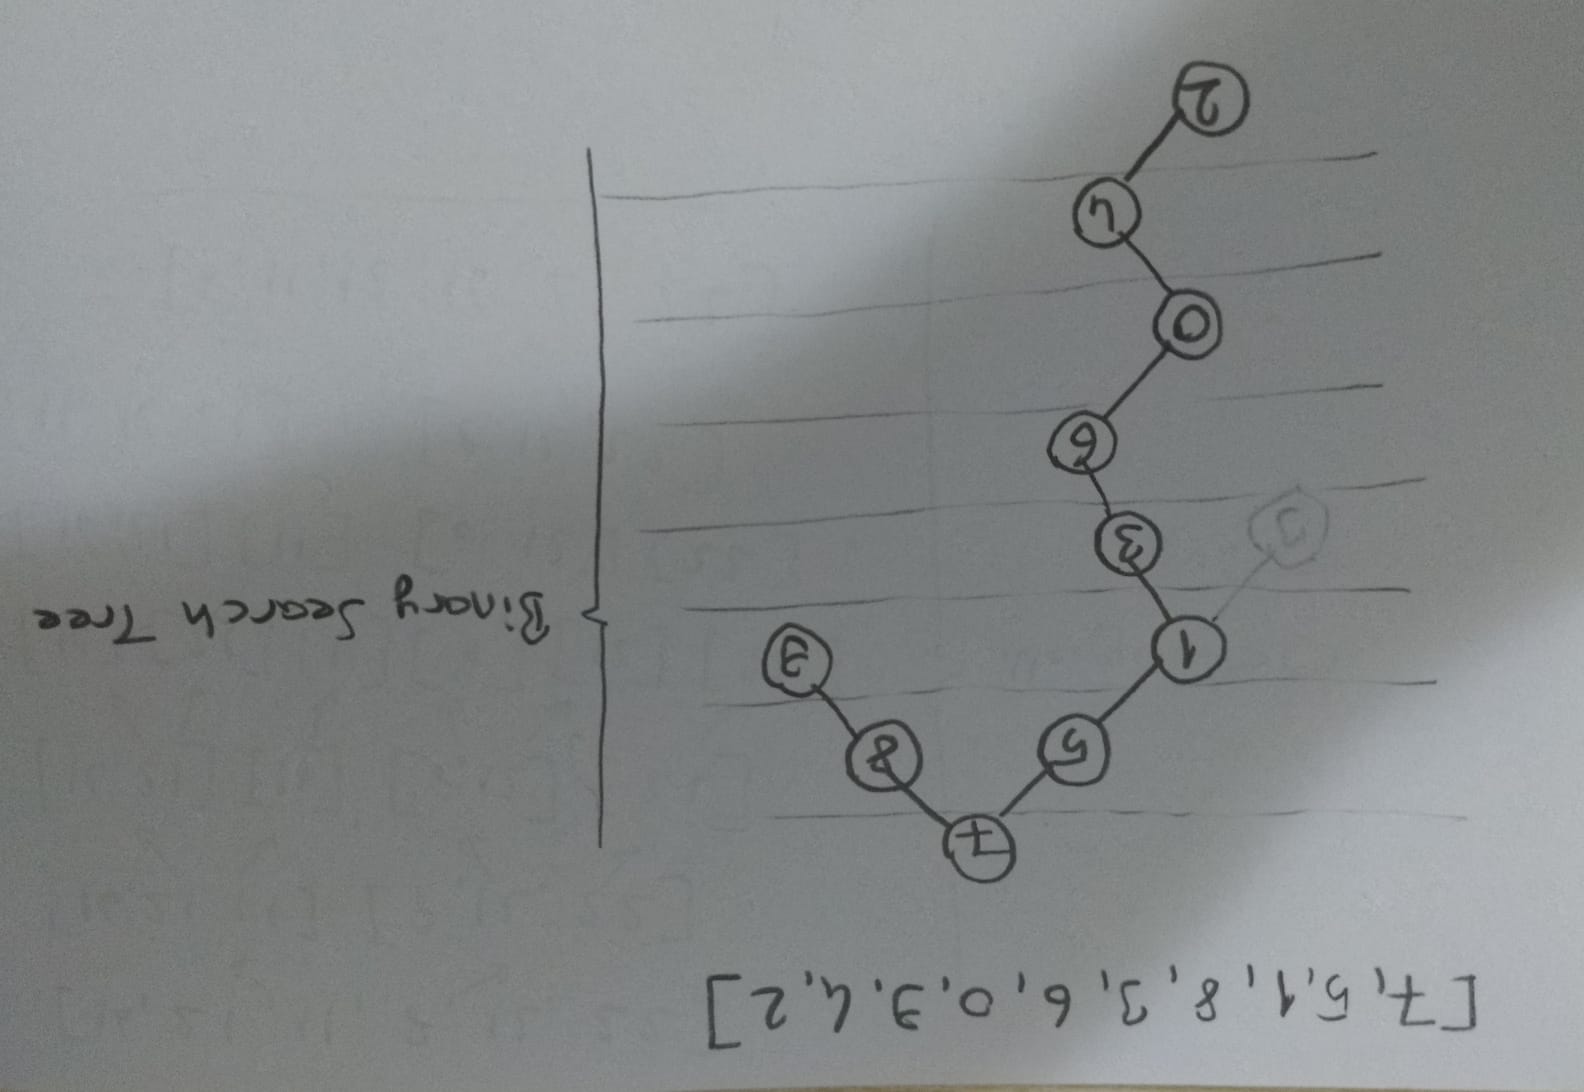 [7, 5, 1, 8, 3, 6, 0, 9, 4, 2]
7
5 8
1 9
3
6
0
4
2
Binary Search Tree